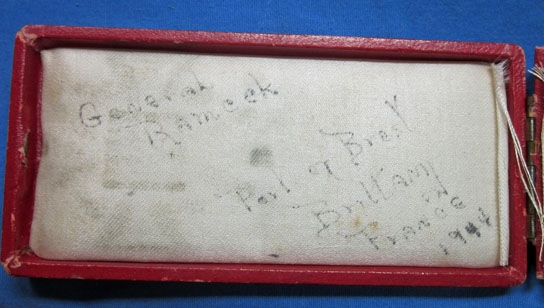 General
Ramcek
Port of Brest
Brittany
in
France
1944